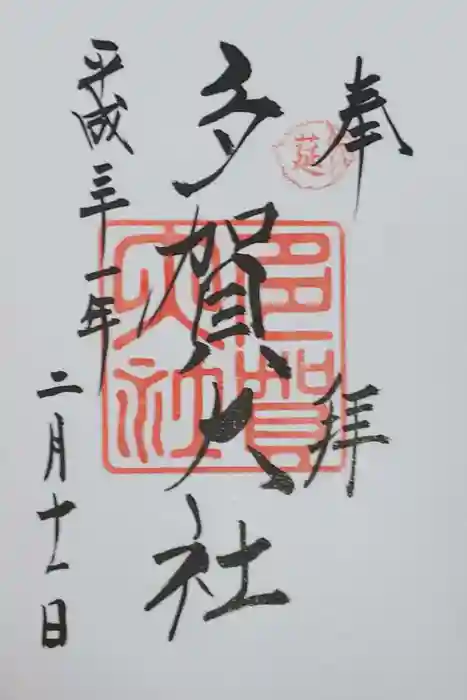 奉拝
延
多賀大社
多賀大社
平成三十一年
二月十一日